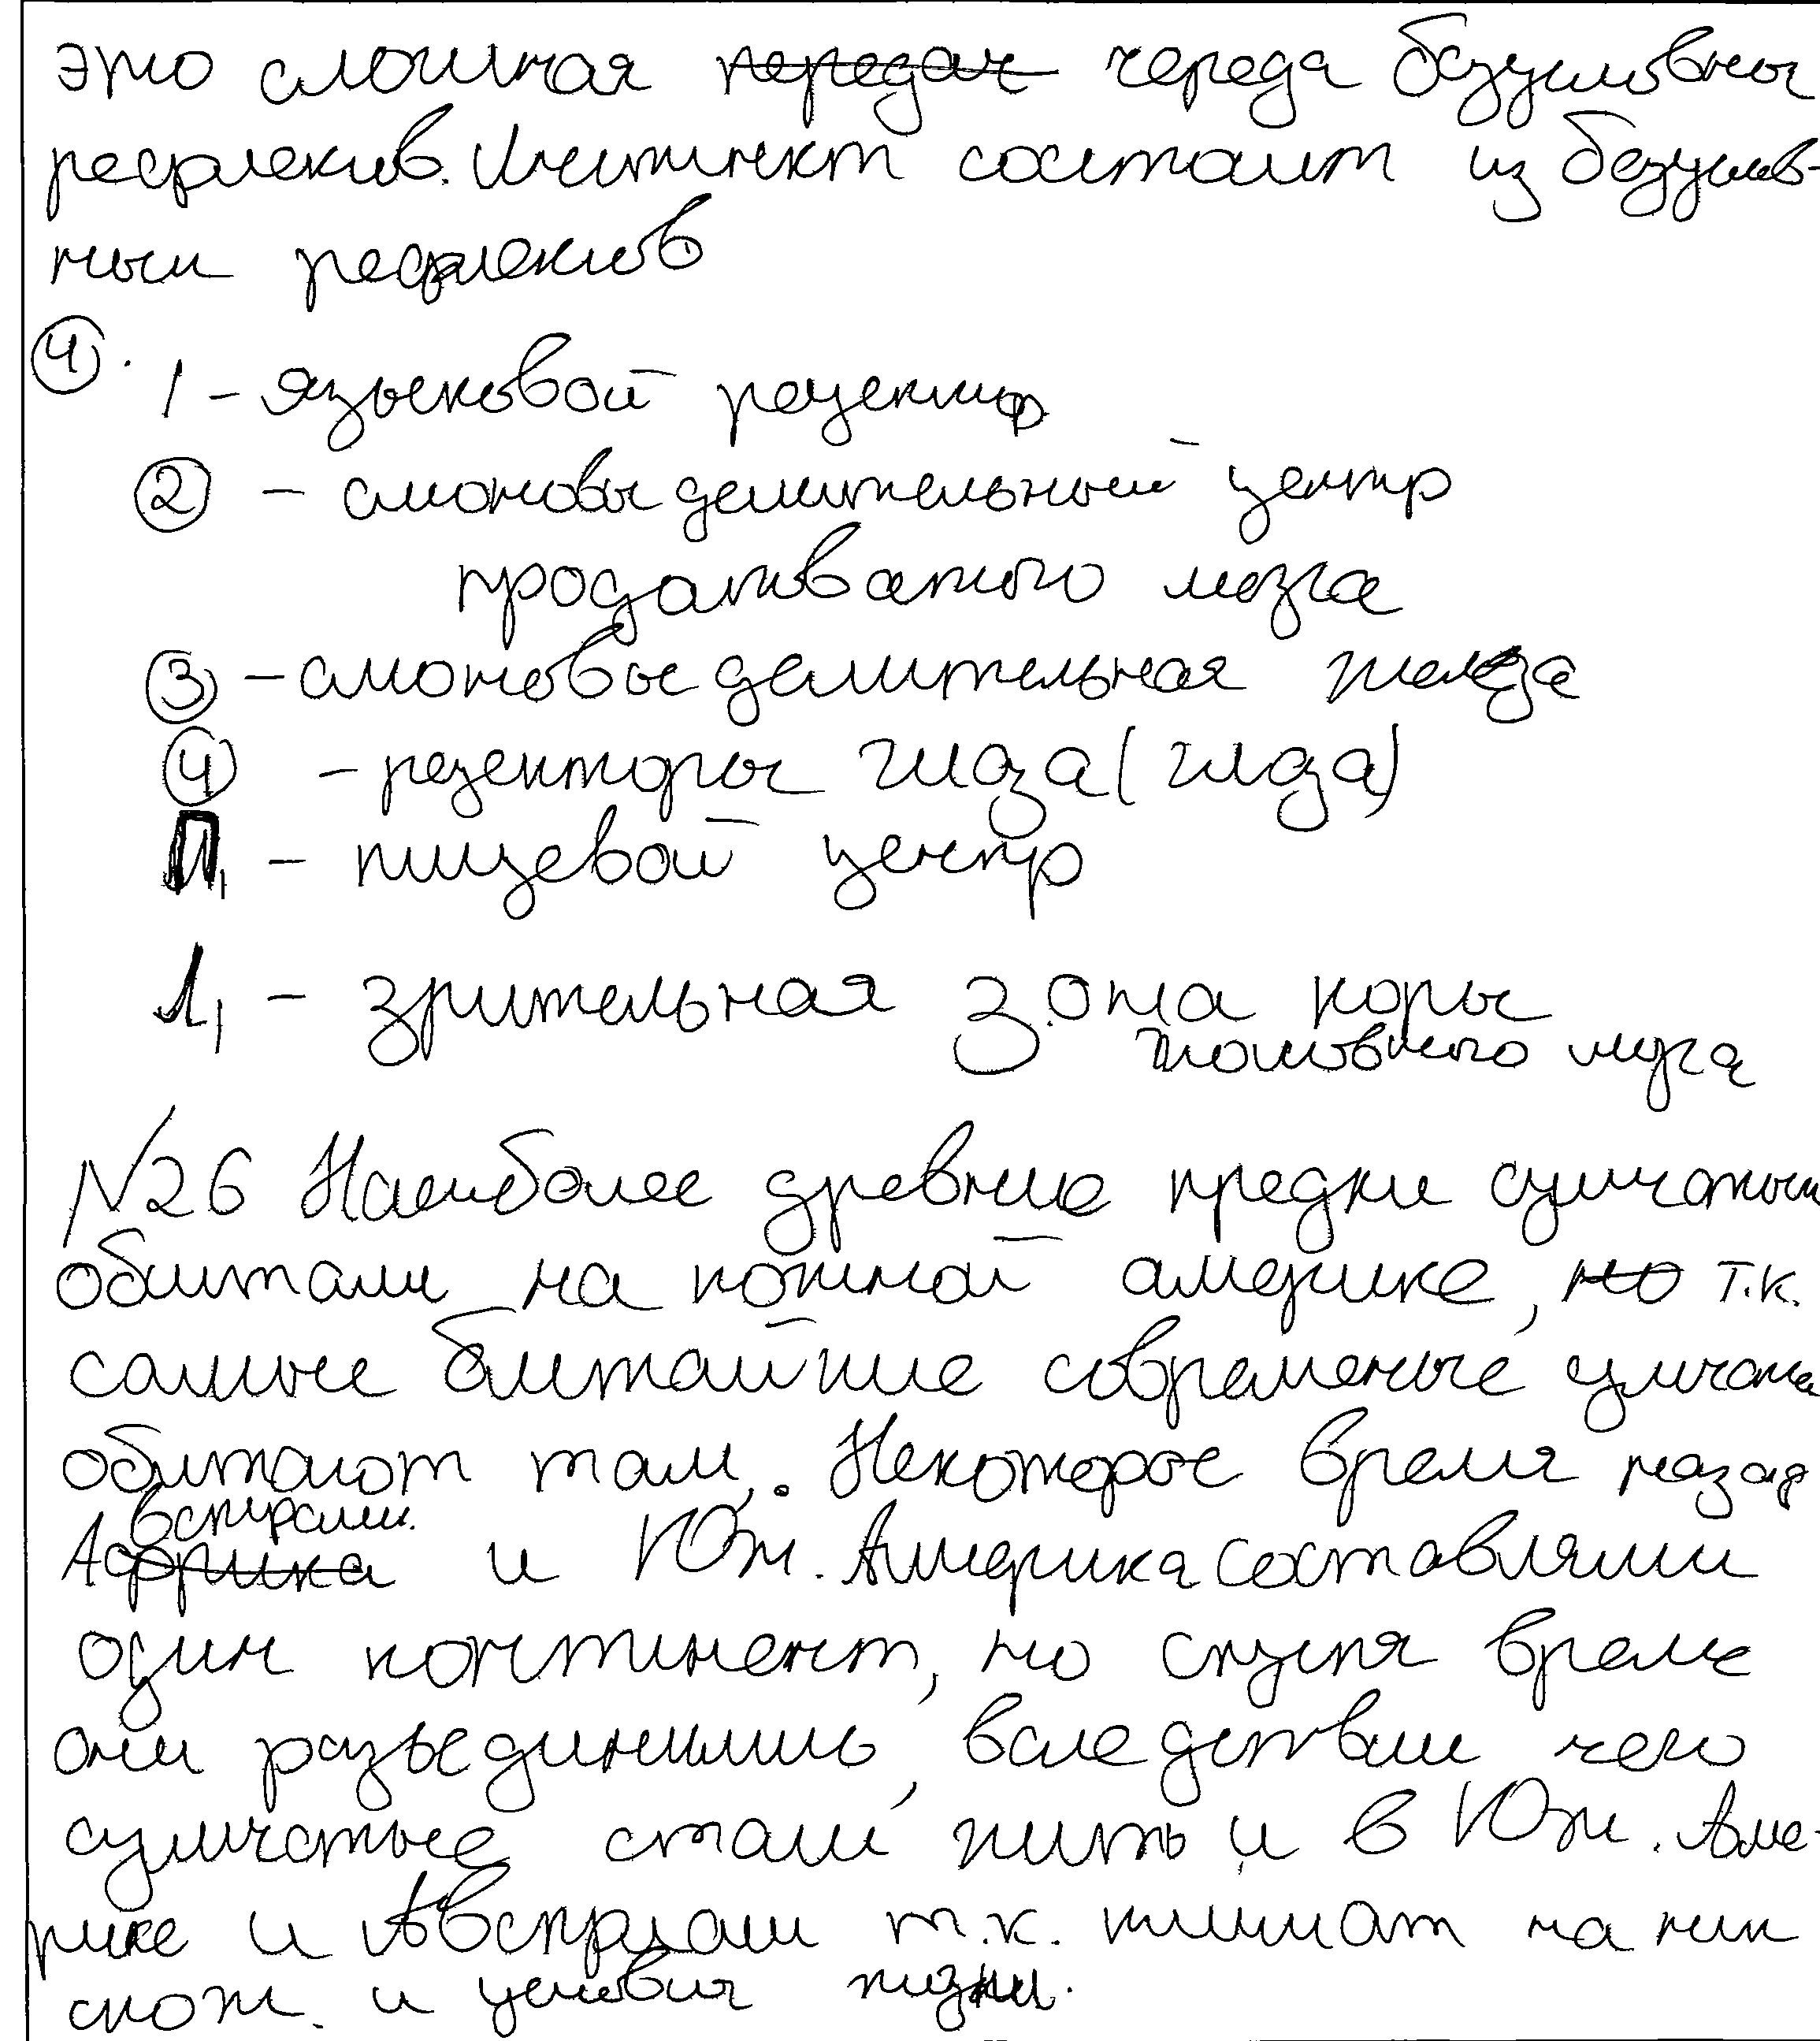 это сложная передач череда безусловны
рефлексив. Инстинкт состоит из безуслв-
ных рефлексов
④.
1 - языковой рецептор
② - слюновыделительный центр
продолговатого мозга
③ - слюновыделительная железа
④ - рецепторы глаза (глаза)
П₁ - пищевой центр
Л₁ - зрительная зона коры
головного мозга
№26 Наиболее древние предки сумчатых
обитали на южной америке, но т.к.
самые ближайшие современые сумчаты
обитают там. Некоторое время назад
встралии.
Африка и Юж. Америка составляли
один континент, но спустя время
они разъединились, вследствии чего
сумчатые стали жить и в Юж. Аме-
рике и Австралии т.к. климат на них
схож. и условия жизни.